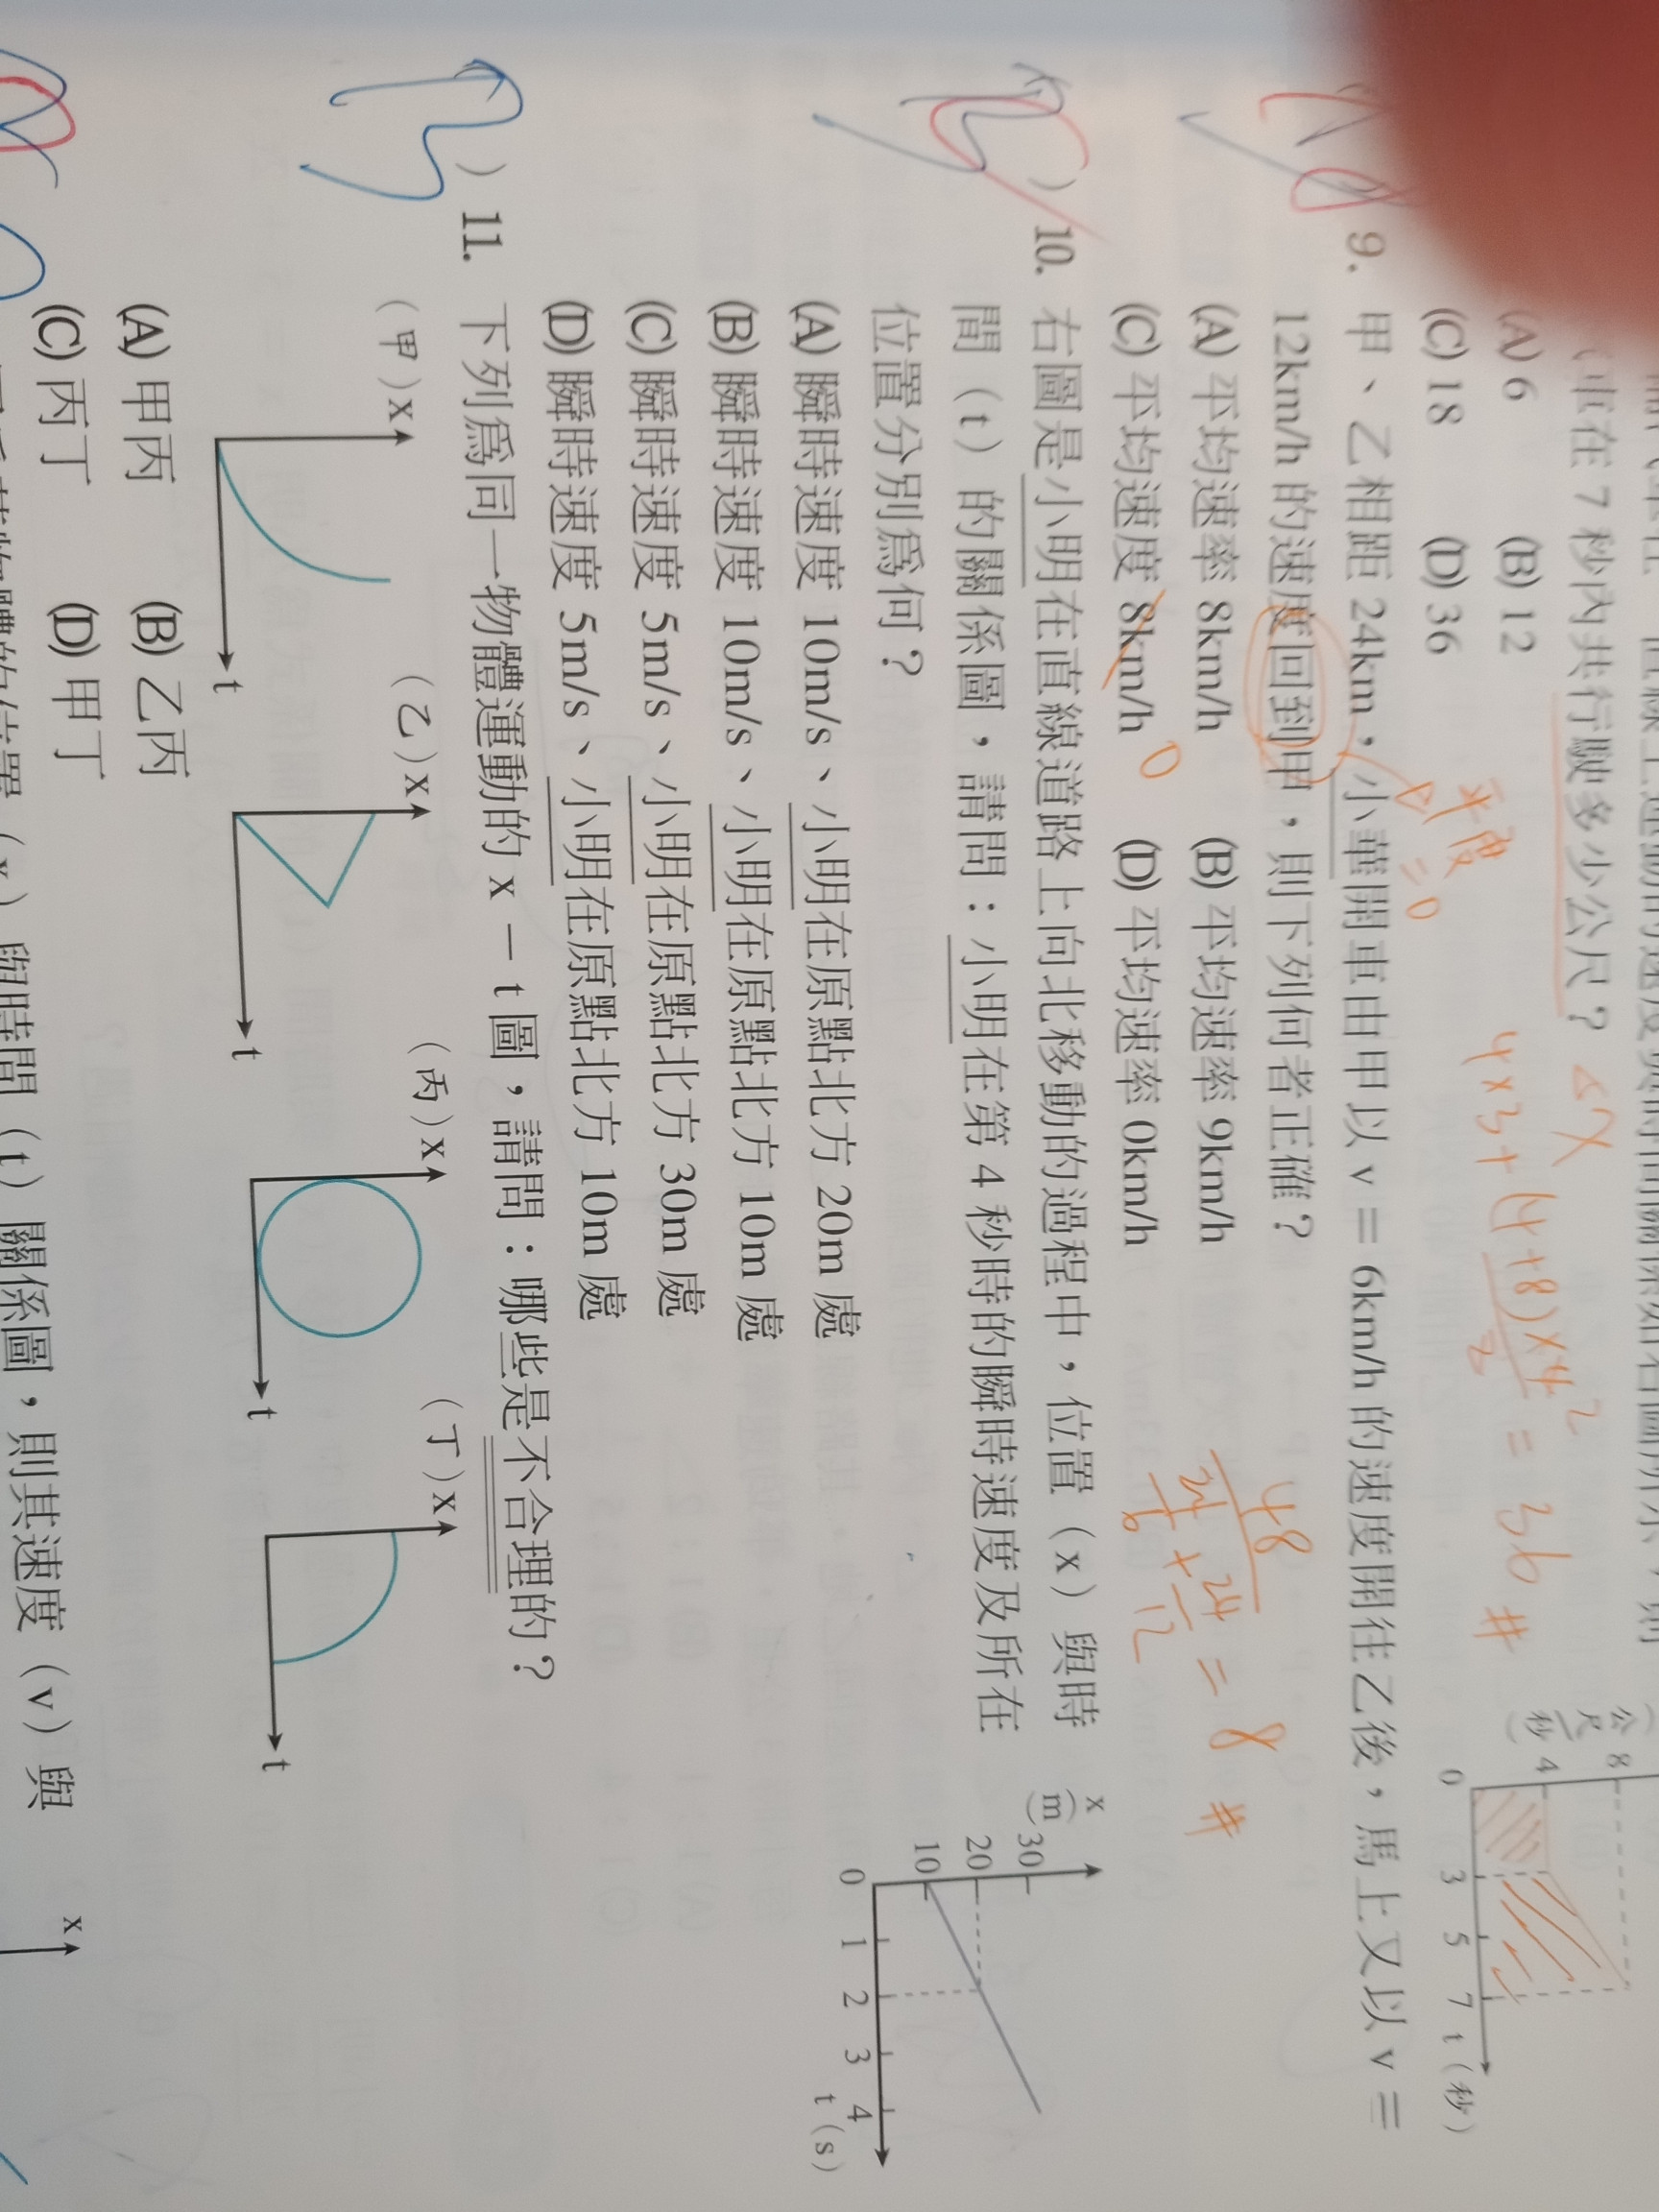 車在 7 秒內共行駛多少公尺？ ΔX
(A) 6 (B) 12
(C) 18 (D) 36
4×3+(4+8)×4/2=36 #
公尺/秒
8
4
0 3 5 7 t（秒）
9. 甲、乙相距 24km，小華開車由甲以 v ＝ 6km/h 的速度開往乙後，馬上又以 v ＝
12km/h 的速度回到甲，則下列何者正確？
(A) 平均速率 8km/h (B) 平均速率 9km/h
(C) 平均速度 8km/h 0 (D) 平均速率 0km/h
=0
48/(24/6+24/12)=8 #
) 10. 右圖是小明在直線道路上向北移動的過程中，位置（x）與時
間（t）的關係圖，請問：小明在第 4 秒時的瞬時速度及所在
位置分別為何？
(A) 瞬時速度 10m/s、小明在原點北方 20m 處
(B) 瞬時速度 10m/s、小明在原點北方 10m 處
(C) 瞬時速度 5m/s、小明在原點北方 30m 處
(D) 瞬時速度 5m/s、小明在原點北方 10m 處
x(m)
30
20
10
0 1 2 3 4 t（s）
) 11. 下列為同一物體運動的 x － t 圖，請問：哪些是不合理的？
（甲）x （乙）x （丙）x （丁）x
t t t t
(A) 甲丙 (B) 乙丙
(C) 丙丁 (D) 甲丁
（x）與時間（t）關係圖，則其速度（v）與
x